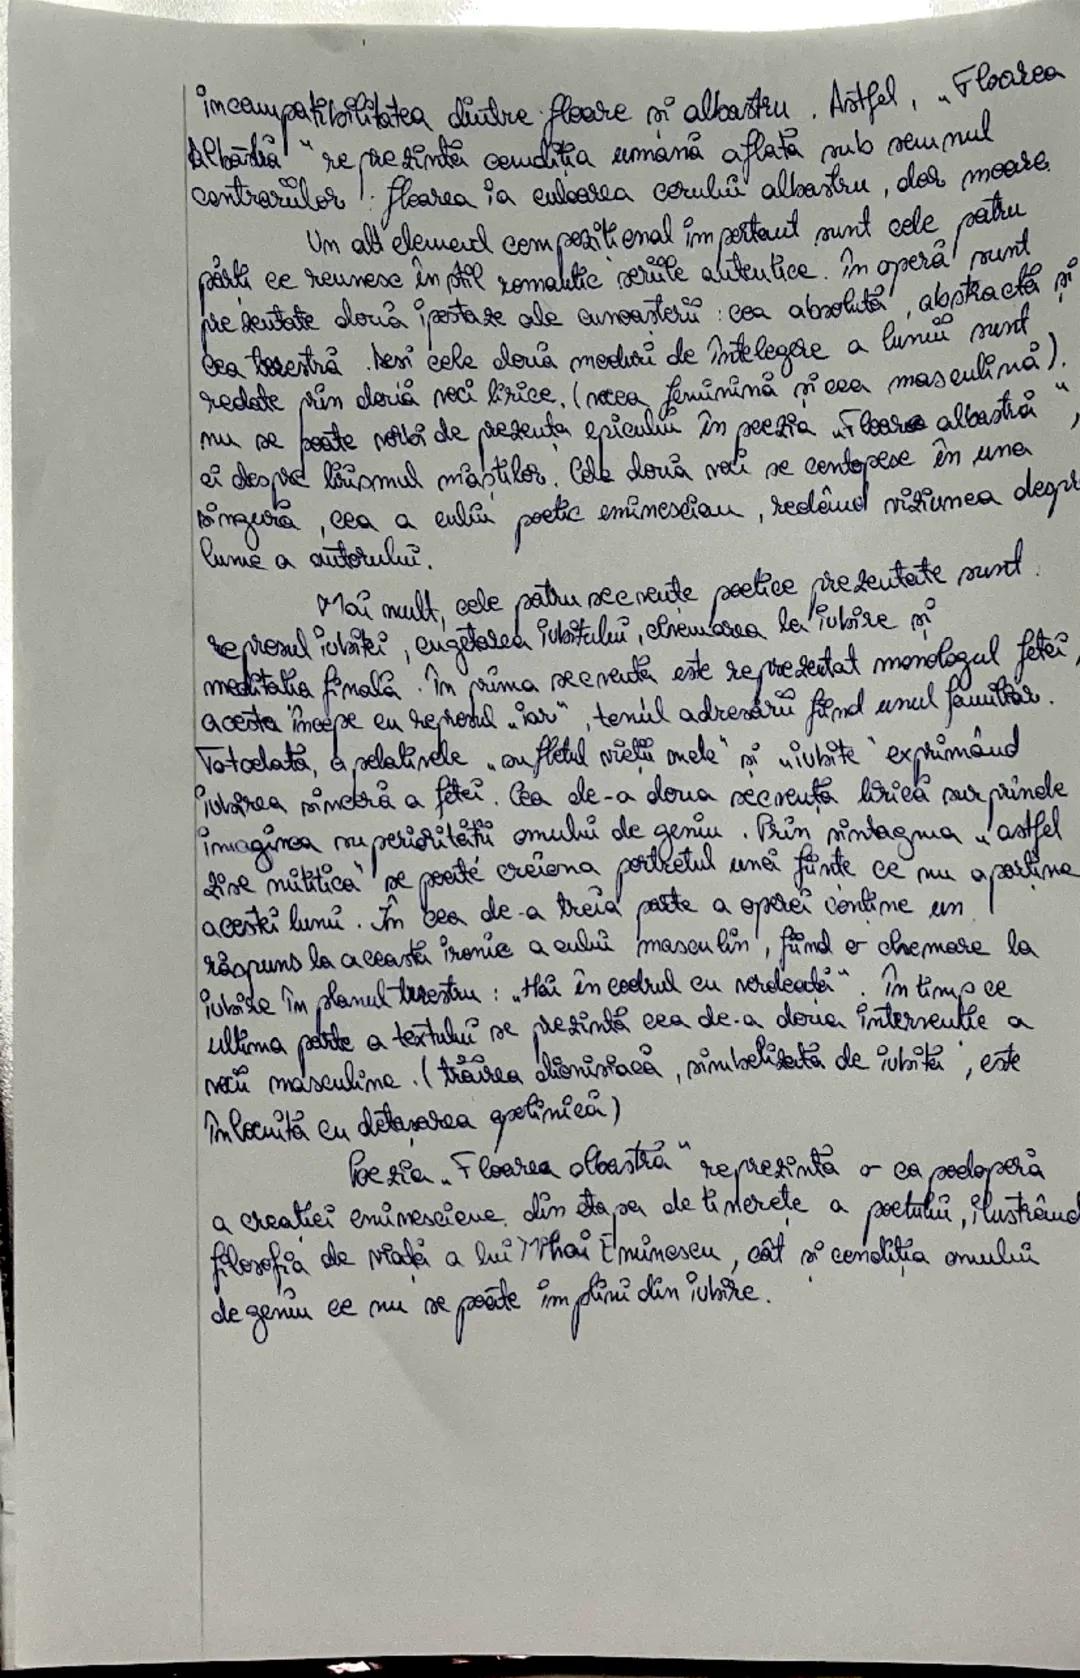 incompatibilitatea dintre floare și albastru. Astfel, „Floarea
Albastră" reprezintă condiția umană aflată sub semnul
contrariilor: floarea ia culoarea cerului albastru, dar moare.
Un alt element compozițional important sunt cele patru
părți ce reunesc în stil romantic seriile autentice. În operă sunt
prezentate două ipostaze ale cunoașterii: cea absolută, abstractă și
cea terestră. Deși cele două moduri de înțelegere a lumii sunt
redate prin două voci lirice, (vocea feminină și cea masculină).
nu se poate vorbi de prezența epicului în poezia „Floarea albastră",
ci despre lirismul măștilor. Cele două voci se contopesc în una
singură, cea a eului poetic eminescian, redând viziunea despre
lume a autorului.
Mai mult, cele patru secvențe poetice prezentate sunt:
reproșul iubitei, cugetarea iubitului, chemarea la iubire și
meditația finală. În prima secvență este reprezentat monologul fetei,
acesta începe cu reproșul „iar", tonul adresării fiind unul familiar.
Totodată, apelativele „sufletul vieții mele" și „iubite" exprimând
iubirea sinceră a fetei. Cea de-a doua secvență lirică surprinde
imaginea superiorității omului de geniu. Prin sintagma „astfel
zise mititica" se poate creiona portretul unei ființe ce nu aparține
acestei lumi. În cea de-a treia parte a operei conține un
răspuns la această ironie a eului masculin, fiind o chemare la
iubire în planul terestru: „Hai în codrul cu verdeață". În timp ce
ultima parte a textului se prezintă cea de-a doua intervenție a
vocii masculine. (trăirea dionisiacă, simbolizată de iubită, este
înlocuită cu detașarea apolinică)
Poezia „Floarea albastră" reprezintă o capodoperă
a creației eminesciene, din etapa de tinerețe a poetului, ilustrând
filosofia de viață a lui Mihai Eminescu, cât și condiția omului
de geniu ce nu se poate împlini din iubire.